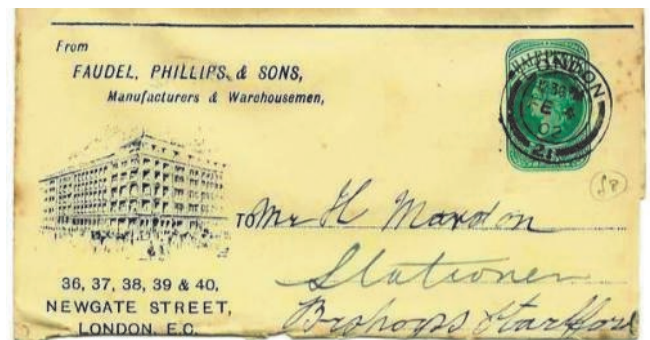 From
FAUDEL, PHILLIPS, & SONS,
Manufacturers & Warehousemen,
HALFPENNY
LONDON
FE 4
02
21
58
TO Mr H Mardon
Stationer
Bishops Stortford
36, 37, 38, 39 & 40,
NEWGATE STREET,
LONDON, E.C.